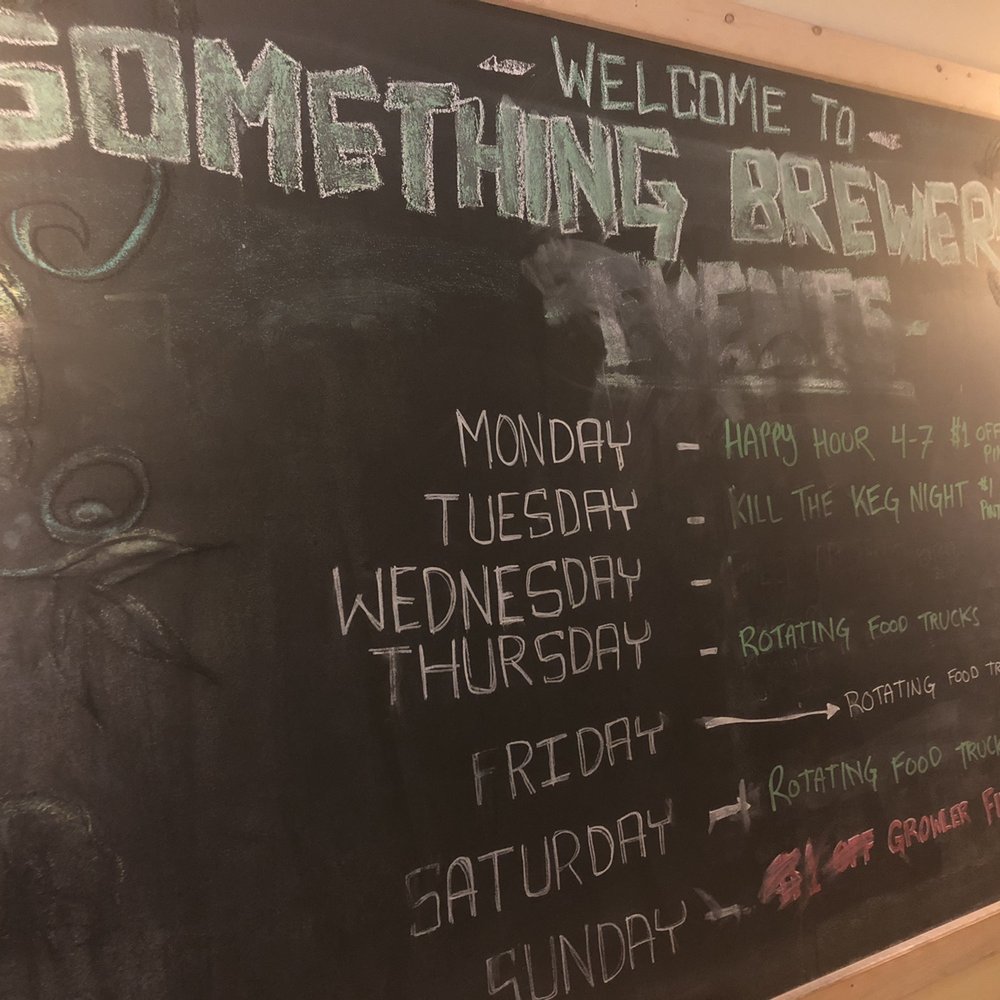 - WELCOME TO -
SOMETHING BREWERY
EVENTS -
MONDAY - HAPPY HOUR 4-7 $1 OFF
TUESDAY - KILL THE KEG NIGHT $1
WEDNESDAY -
THURSDAY - ROTATING FOOD TRUCKS
FRIDAY → ROTATING FOOD
SATURDAY - ROTATING FOOD TRUCK
SUNDAY - $1 OFF GROWLER